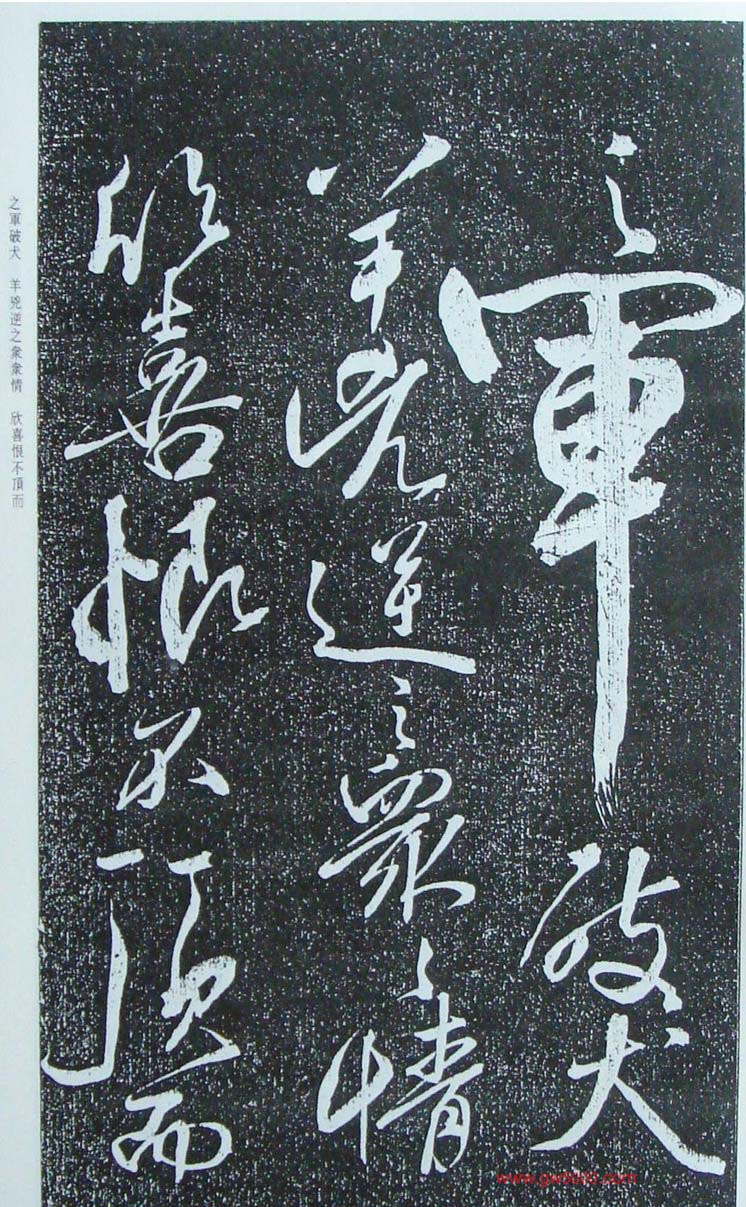 之軍破犬
羊兇逆之衆々情
欣喜恨不頂而
之軍破犬　羊兇逆之衆衆情　欣喜恨不頂而